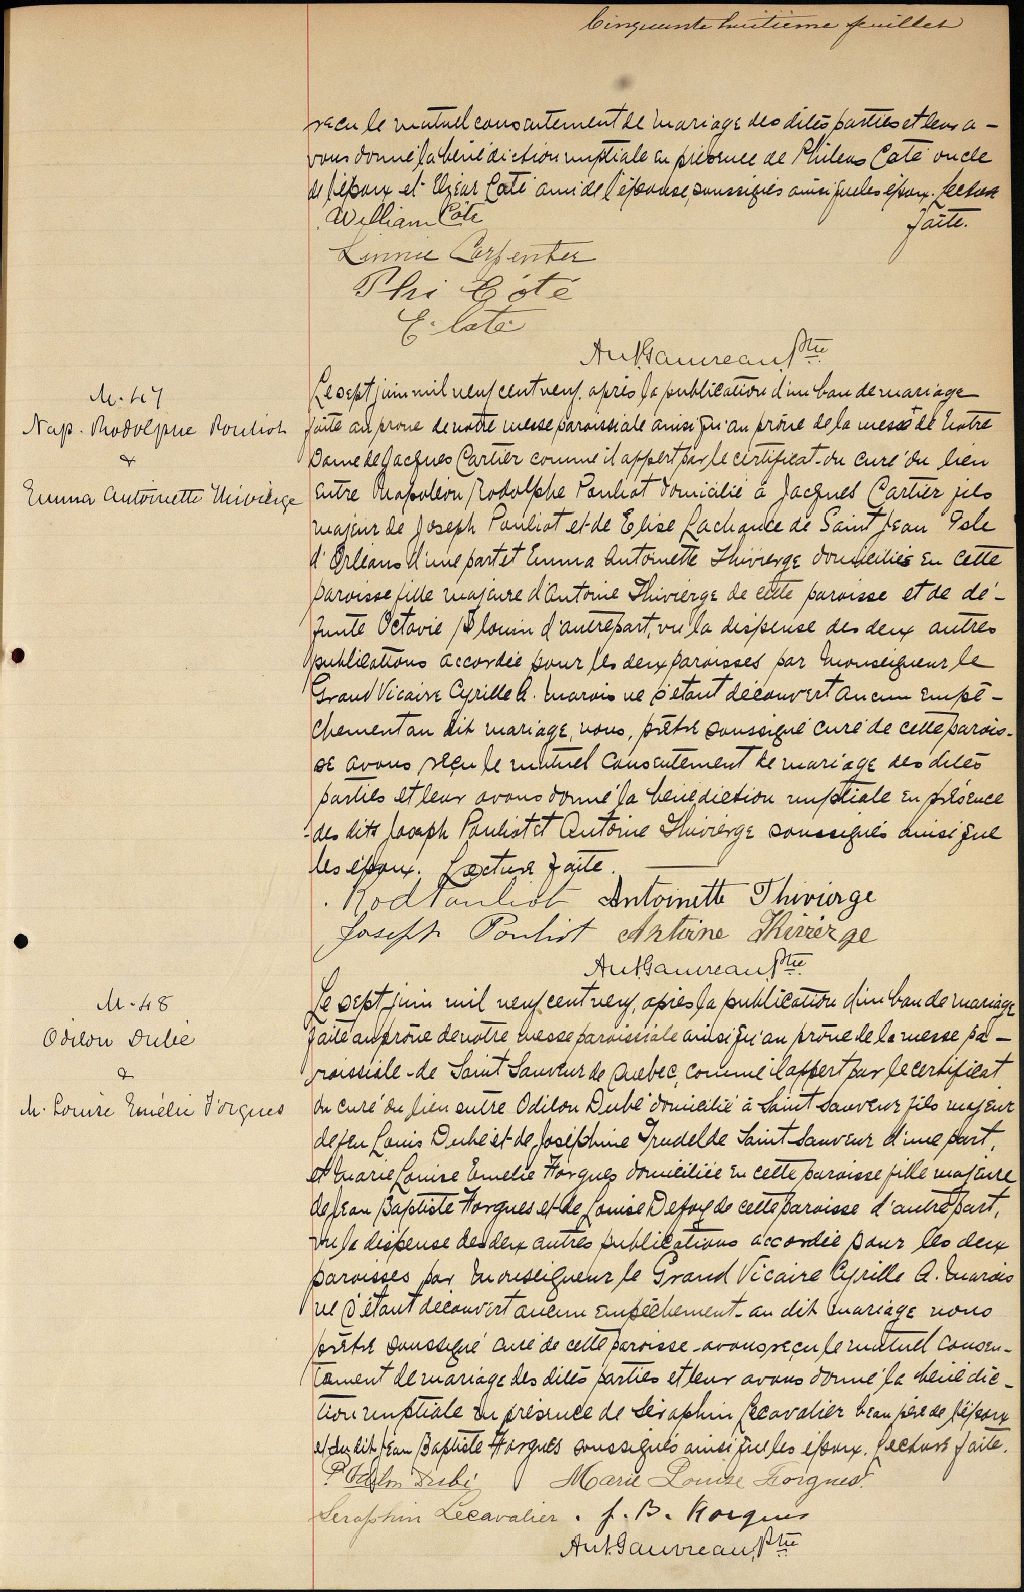 Cinquante huitième feuillet
reçu le mutuel consentement de mariage des dites parties et leur a-
vons donné la bénédiction nuptiale en présence de Phileas Coté oncle
de l'époux et Elzéar Coté ami de l'épouse, soussignés ainsi que les époux. Lecture
faite.
William Côté
Linnie Carpenter
Phi Côté
E. Coté
Ant. Gauvreau Ptre
M. 47
Nap. Rodolphe Pouliot
&
Emma Antoinette Thivierge
Le sept juin mil neuf cent neuf, après la publication d'un ban de mariage
faite au prône de notre messe paroissiale ainsi qu'au prône de la messe de Notre
Dame de Jacques Cartier comme il appert par le certificat du curé du lieu
entre Napoléon Rodolphe Pouliot domicilié à Jacques Cartier fils
majeur de Joseph Pouliot et de Elise Lachance de Saint Jean Isle
d'Orléans d'une part et Emma Antoinette Thivierge domiciliée en cette
paroisse fille majeure d'Antoine Thivierge de cette paroisse et de dé-
funte Octavie Plouin d'autre part, vu la dispense des deux autres
publications accordée pour les deux paroisses par Monseigneur le
Grand Vicaire Cyrille A. Marois ne s'étant découvert aucun empê-
chement au dit mariage, nous, prêtre soussigné curé de cette parois-
se avons reçu le mutuel consentement de mariage des dites
parties et leur avons donné la bénédiction nuptiale en présence
des dits Joseph Pouliot et Antoine Thivierge soussignés ainsi que
les époux. Lecture faite.
Rod Pouliot Antoinette Thivierge
Joseph Pouliot Antoine Thivierge
Ant. Gauvreau Ptre
M. 48
Odilon Dubé
&
M. Louise Emélie Forgues
Le sept juin mil neuf cent neuf, après la publication d'un ban de mariage
faite au prône de notre messe paroissiale ainsi qu'au prône de la messe pa-
roissiale de Saint Sauveur de Quebec, comme il appert par le certificat
du curé du lieu entre Odilon Dubé domicilié à Saint Sauveur fils majeur
de feu Louis Dubé et de Joséphine Trudel de Saint Sauveur d'une part,
et Marie Louise Emélie Forgues domiciliée en cette paroisse fille majeure
de Jean Baptiste Forgues et de Louise Defoy de cette paroisse d'autre part,
vu la dispense des deux autres publications accordée pour les deux
paroisses par Monseigneur le Grand Vicaire Cyrille A. Marois
ne s'étant découvert aucun empêchement au dit mariage nous
prêtre soussigné curé de cette paroisse avons reçu le mutuel consen-
tement de mariage des dites parties et leur avons donné la bénédic-
tion nuptiale en présence de Séraphin Lecavalier beau père de l'époux
et du dit Jean Baptiste Forgues soussignés ainsi que les époux. Lecture faite.
Odilon Dubé Marie Louise Forgues
Seraphin Lecavalier. J. B. Forgues
Ant. Gauvreau, Ptre